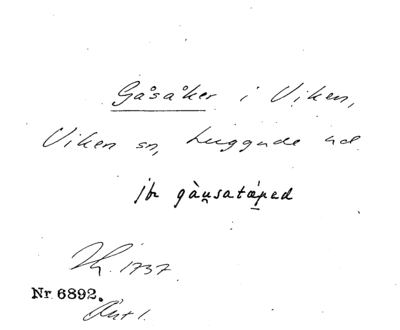 Gåsåker i Viken,
Viken sn, Luggude hd
jfr gàu̯satæ̀ped
1737.
Nr 6892.